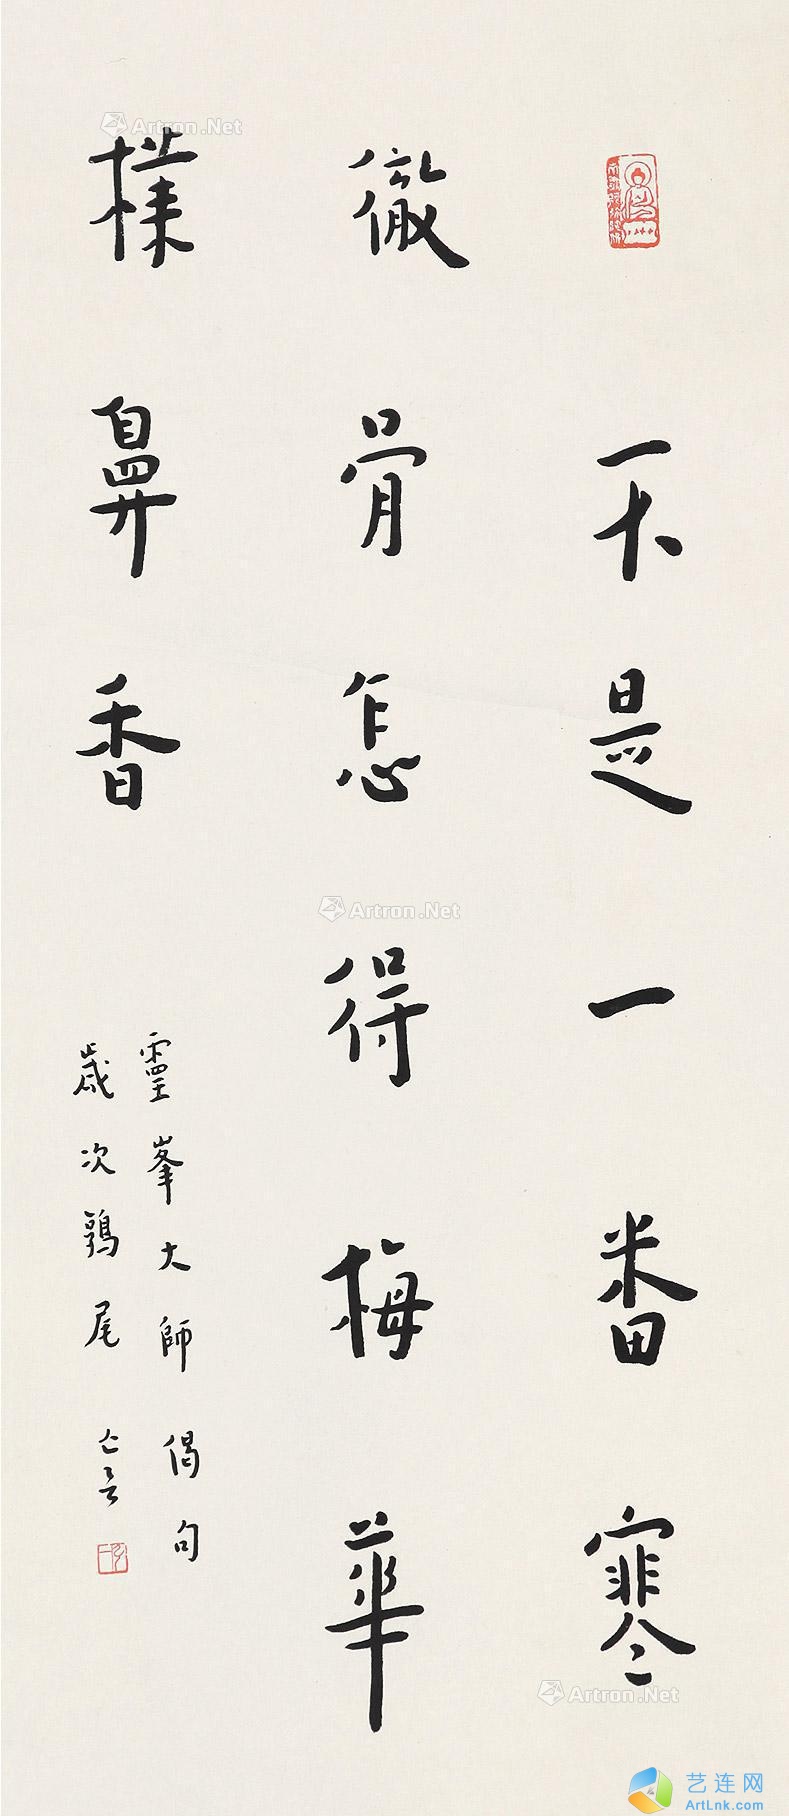 不是一番寒
徹骨怎得梅華
樸鼻香
靈峯大師偈句
歲次鶉尾 亡言
弘一
Artron.Net
Artron.Net
Artron.Net
艺连网
ArtLnk.com